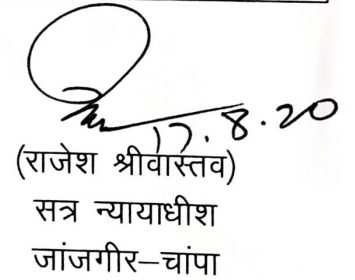 17.8.20
(राजेश श्रीवास्तव)
सत्र न्यायाधीश
जांजगीर–चांपा